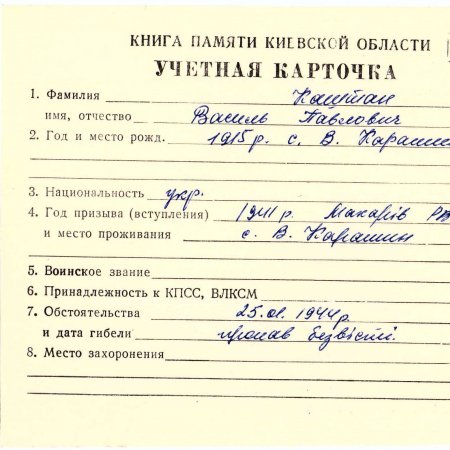 КНИГА ПАМЯТИ КИЕВСКОЙ ОБЛАСТИ
УЧЕТНАЯ КАРТОЧКА
1. Фамилия Каштан
имя, отчество Василь Павлович
2. Год и место рожд. 1915 р. с. В. Карашин
3. Национальность укр.
4. Год призыва (вступления) 1941 р. Макарів
и место проживания с. В. Карашин
5. Воинское звание
6. Принадлежность к КПСС, ВЛКСМ
7. Обстоятельства 25.01.1944 р.
и дата гибели пропав безвісті.
8. Место захоронения